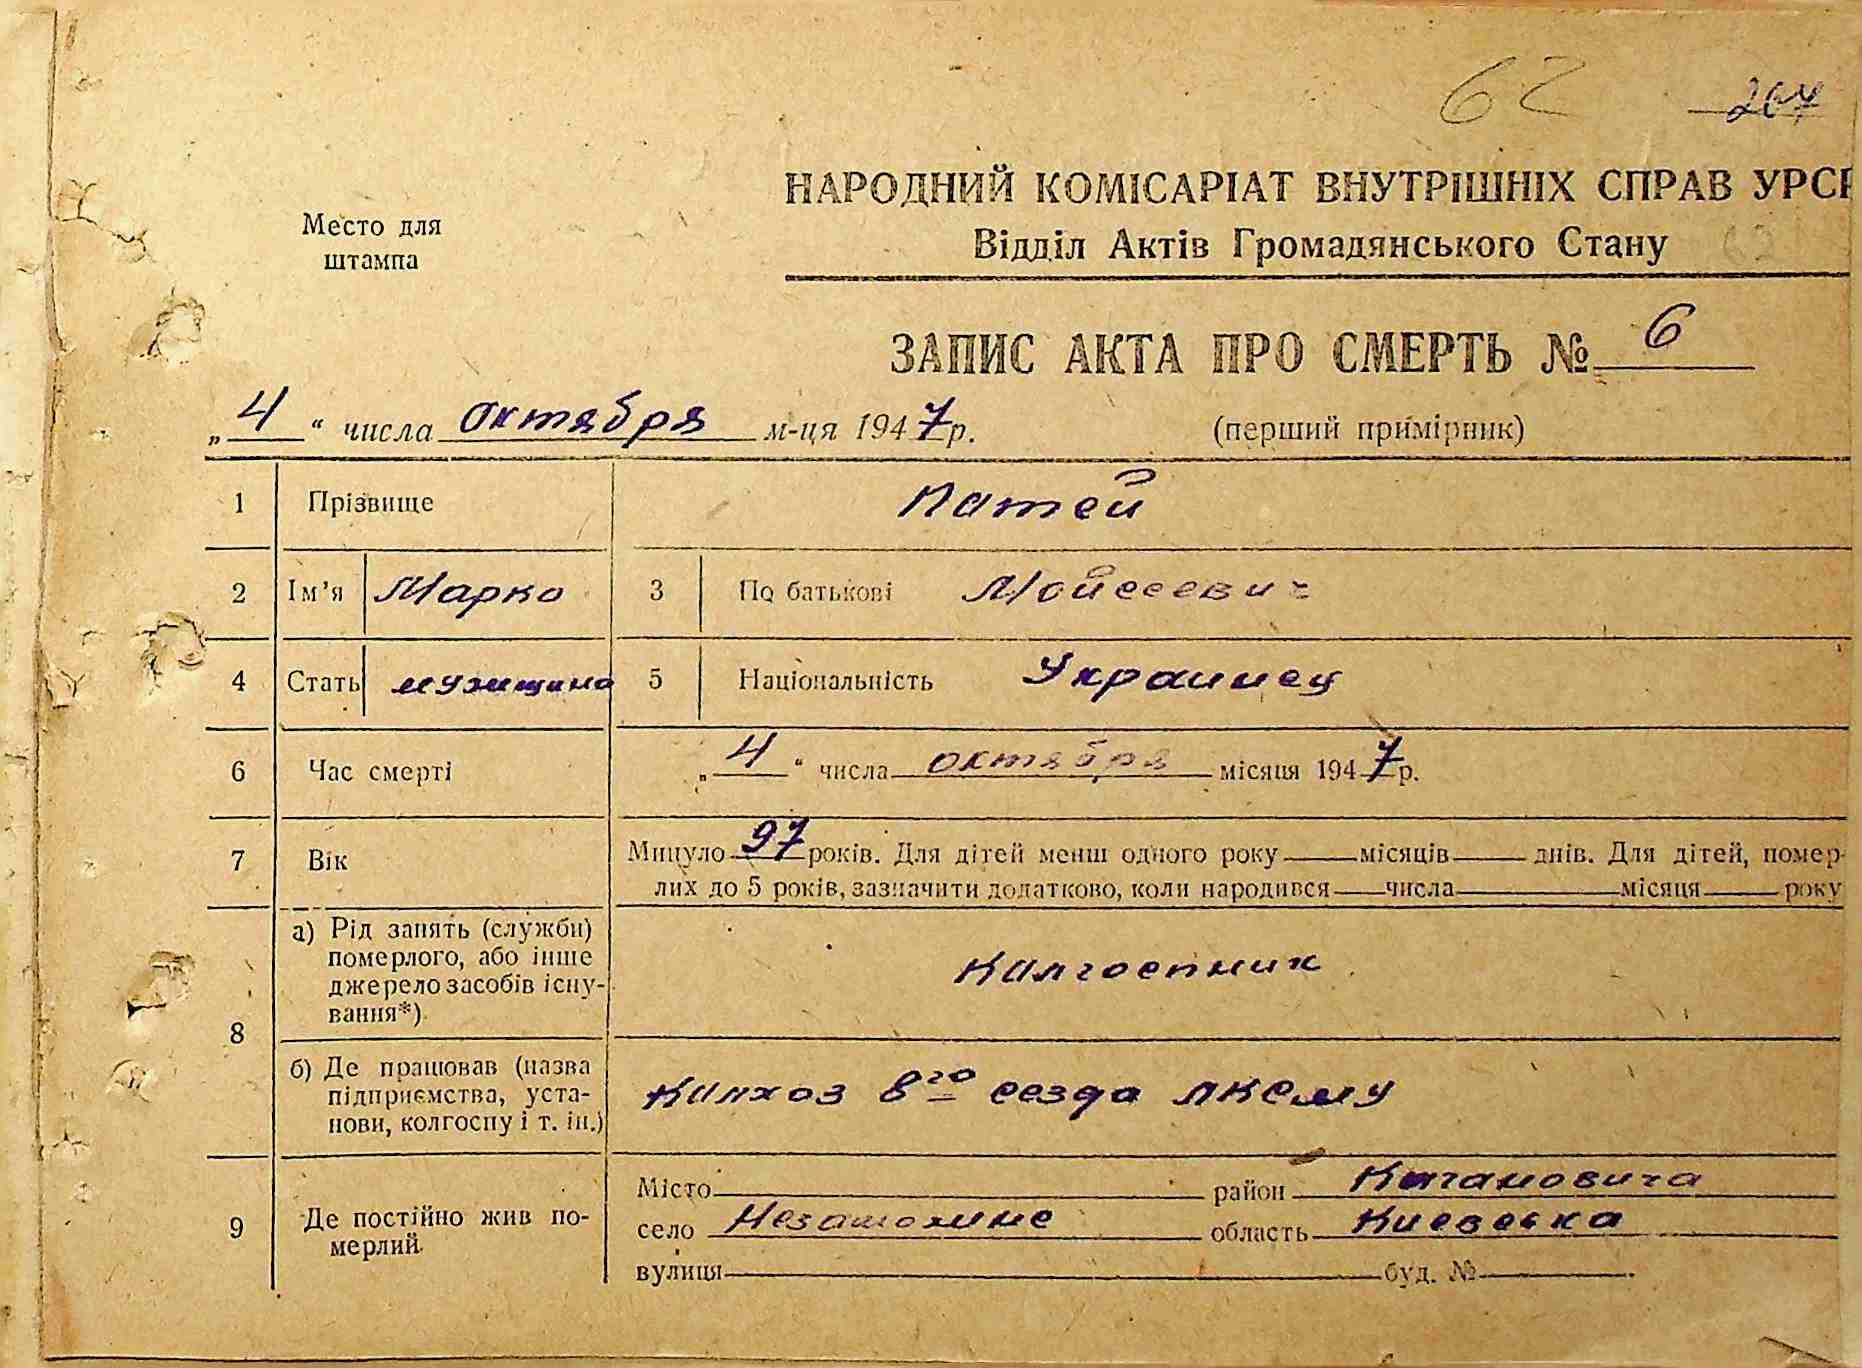 62 204
НАРОДНИЙ КОМІСАРІАТ ВНУТРІШНІХ СПРАВ УРСР
Место для
штампа
Відділ Актів Громадянського Стану
ЗАПИС АКТА ПРО СМЕРТЬ № 6
„4“ числа октября м-ця 1947р. (перший примірник)
1 Прізвище Патей
2 Ім'я Марко 3 По батькові Мойсеевич
4 Стать мужщина 5 Національність Украинец
6 Час смерті „4“ числа октября місяця 1947р.
7 Вік Минуло 97 років. Для дітей менш одного року місяців днів. Для дітей, помер-
лих до 5 років, зазначити додатково, коли народився числа місяця року
8 а) Рід занять (служби)
померлого, або інше
джерело засобів існу-
вання*)
Калгоспник
б) Де працював (назва
підприємства, уста-
нови, колгоспу і т. ін.)
Калхоз 8го сезда ЛКСМУ
9 Де постійно жив по-
мерлий
Місто район Кагановича
село Незаможине область Киевська
вулиця буд. №